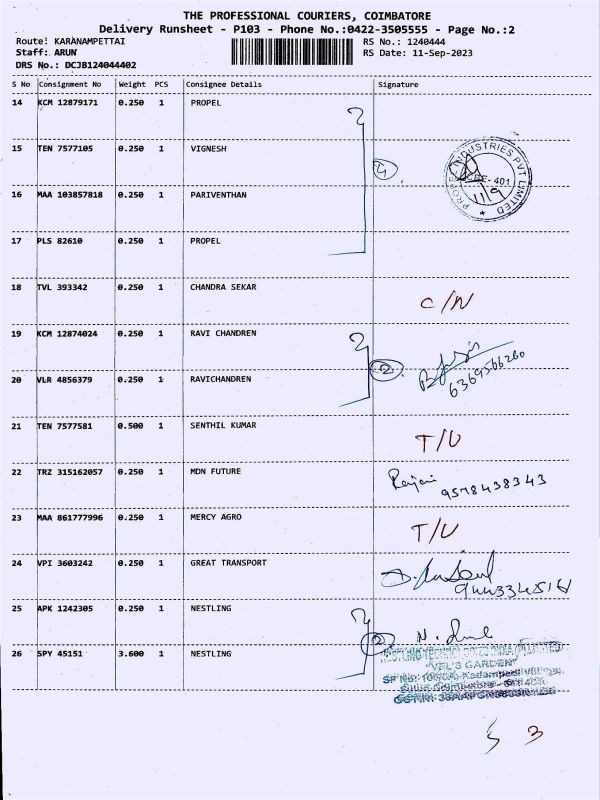 THE PROFESSIONAL COURIERS, COIMBATORE
Delivery Runsheet - P103 - Phone No.:0422-3505555 - Page No.:2
Route: KARANAMPETTAI RS No.: 1240444
Staff: ARUN RS Date: 11-Sep-2023
DRS No.: DCJB124044402
S No Consignment No Weight PCS Consignee Details Signature
14 KCM 12879171 0.250 1 PROPEL
15 TEN 7577105 0.250 1 VIGNESH
4
PROPEL INDUSTRIES PVT LIMITED
CBE - 401
11/9
16 MAA 103857818 0.250 1 PARIVENTHAN
17 PLS 82610 0.250 1 PROPEL
18 TVL 393342 0.250 1 CHANDRA SEKAR C/N
19 KCM 12874024 0.250 1 RAVI CHANDREN
2
6369566260
20 VLR 4856379 0.250 1 RAVICHANDREN
21 TEN 7577581 0.500 1 SENTHIL KUMAR T/U
22 TRZ 315162057 0.250 1 MDN FUTURE 9578438343
23 MAA 861777996 0.250 1 MERCY AGRO T/U
24 VPI 3603242 0.250 1 GREAT TRANSPORT
25 APK 1242305 0.250 1 NESTLING
2
26 SPY 45151 3.600 1 NESTLING
"VEL'S GARDEN"
3